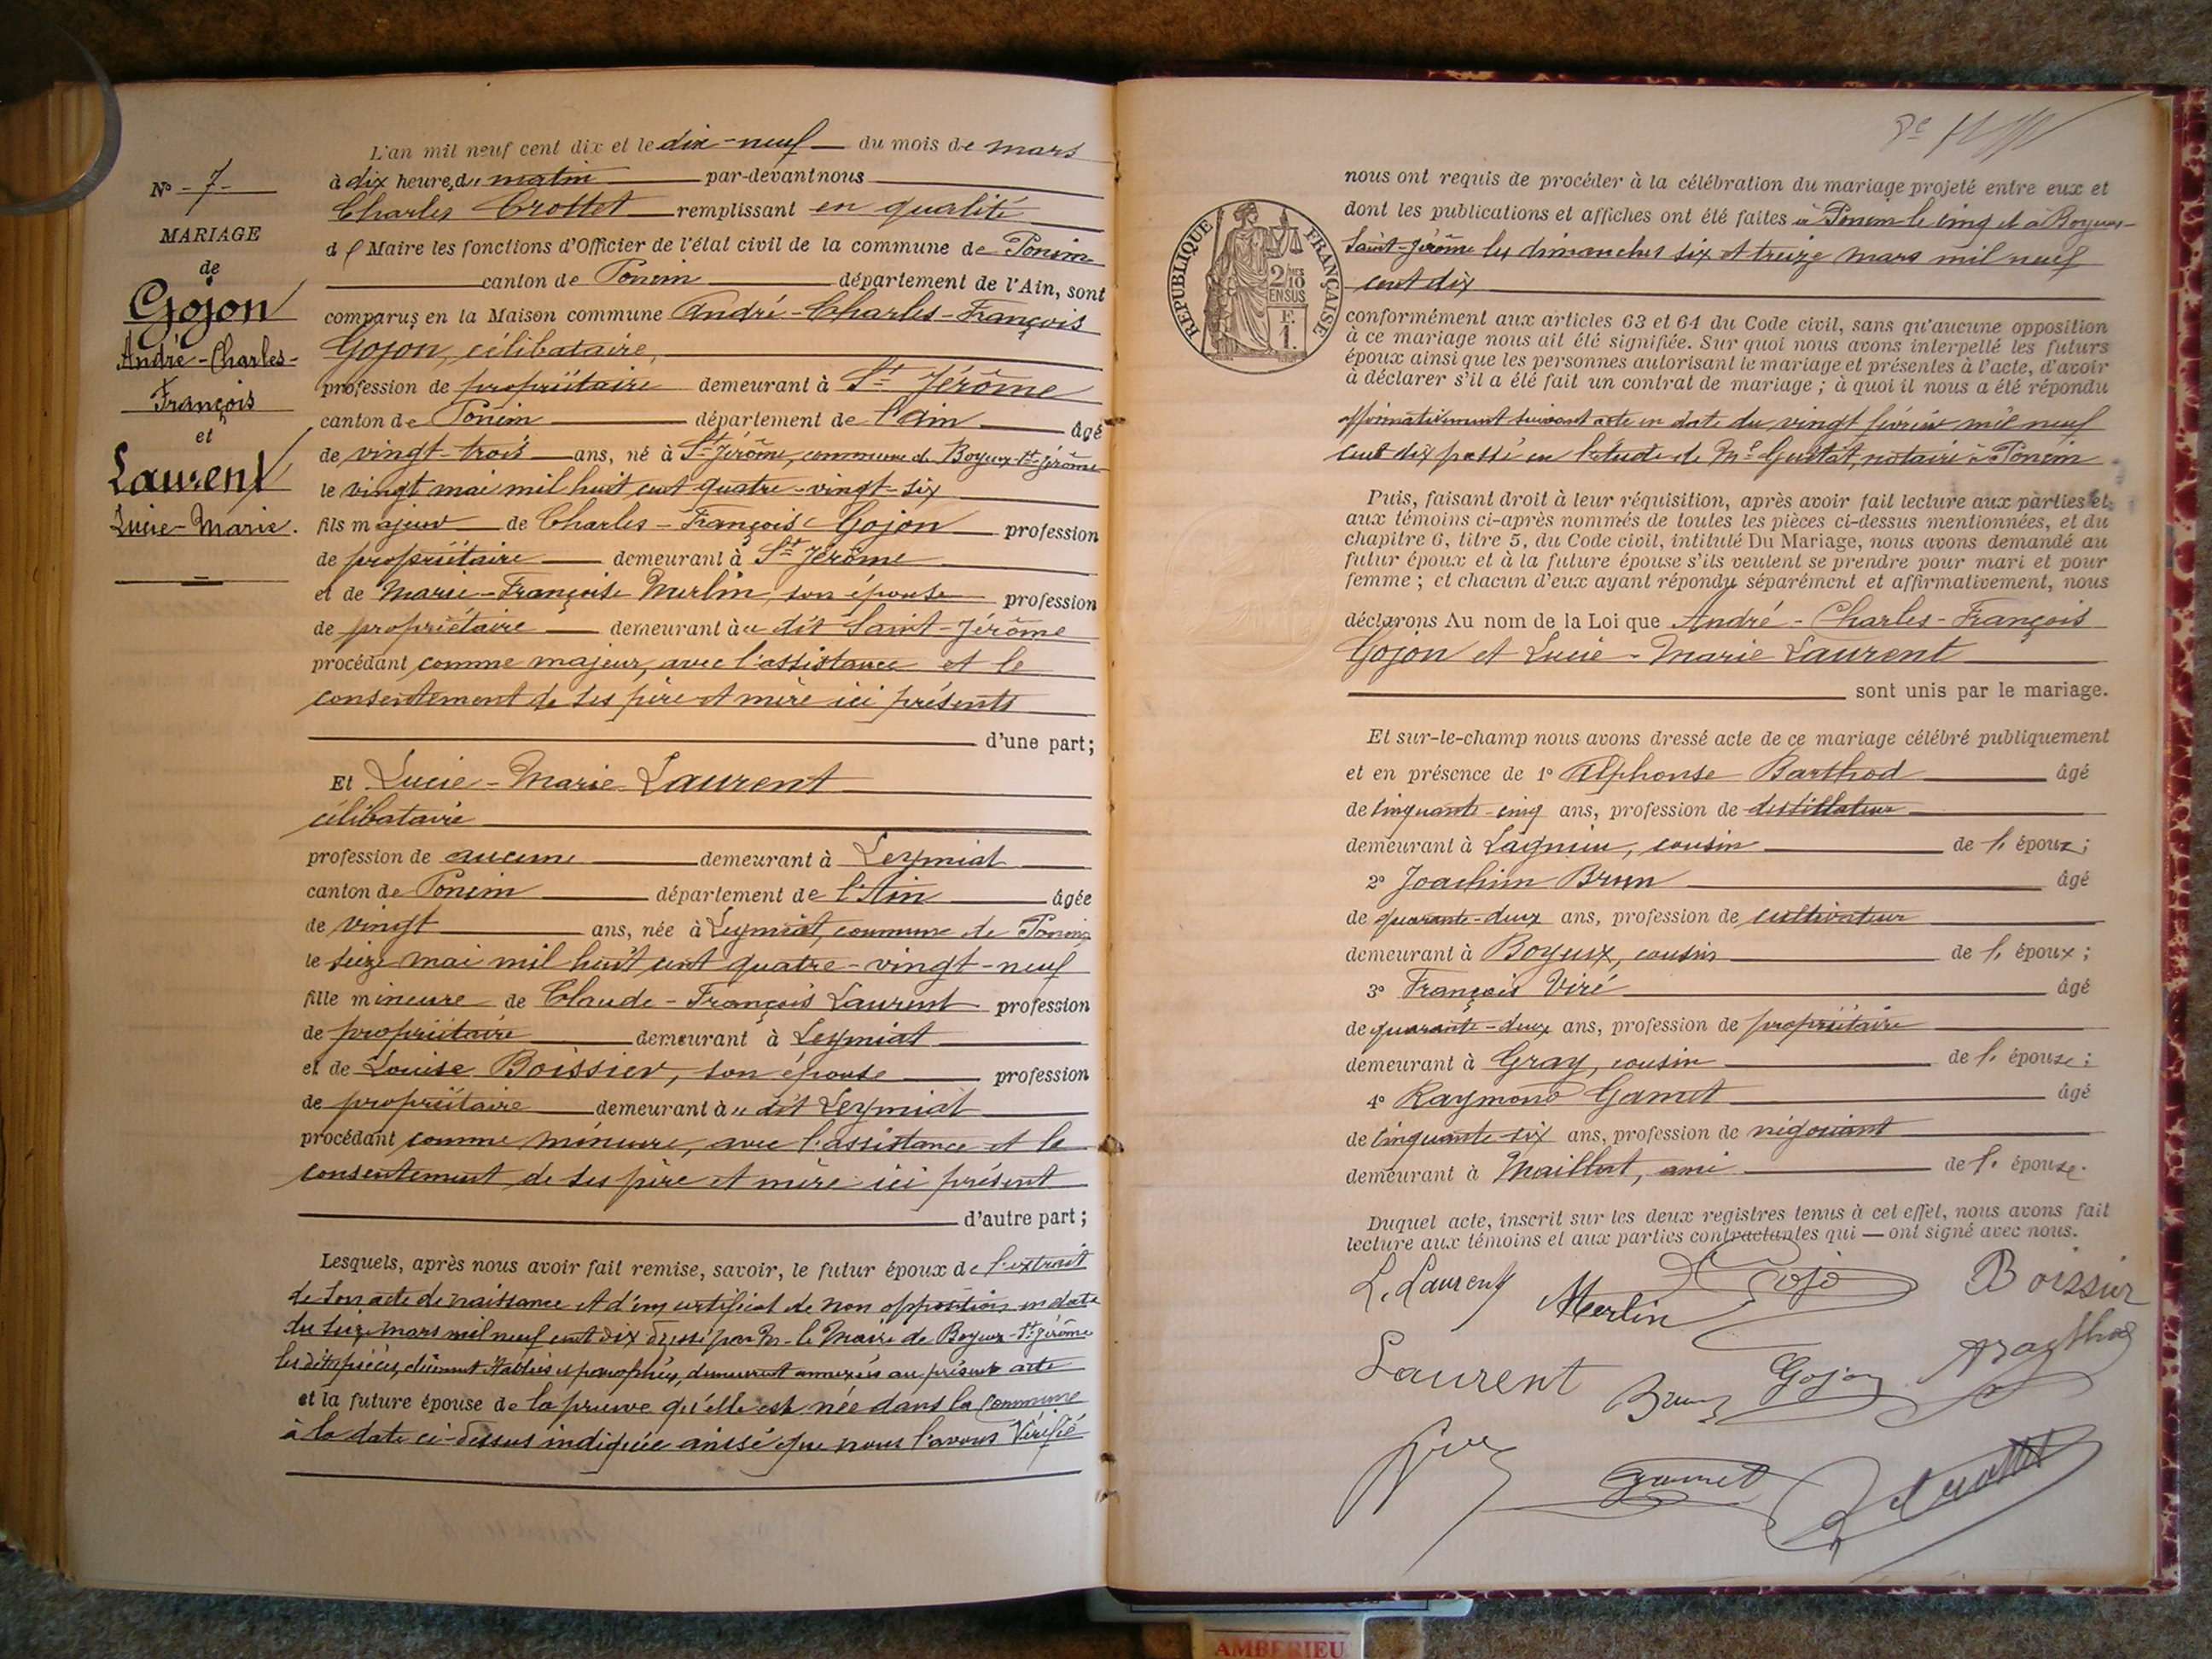 N° - 7 -
MARIAGE
de
Gojon
André-Charles-
François
et
Laurent
Lucie-Marie.
L'an mil neuf cent dix et le dix-neuf du mois de mars
à dix heures du matin par-devant nous
Charles Crottet remplissant en qualité
de Maire les fonctions d'Officier de l'état civil de la commune de Poncin
canton de Poncin département de l'Ain, sont
comparus en la Maison commune André-Charles-François
Gojon, célibataire,
profession de propriétaire demeurant à St Jérôme
canton de Poncin département de l'Ain âgé
de vingt-trois ans, né à St Jérôme, commune de Boyeux-St-Jérôme
le vingt mai mil huit cent quatre-vingt-six
fils majeur de Charles-François Gojon profession
de propriétaire demeurant à St Jérôme
et de Marie-Françoise Merlin, son épouse profession
de propriétaire demeurant au dit Saint-Jérôme
procédant comme majeur, avec l'assistance et le
consentement de ses père et mère ici présents
d'une part;
Et Lucie-Marie Laurent
célibataire
profession de aucune demeurant à Leymiat
canton de Poncin département de l'Ain âgée
de vingt ans, née à Leymiat, commune de Poncin
le seize mai mil huit cent quatre-vingt-neuf
fille mineure de Claude-François Laurent profession
de propriétaire demeurant à Leymiat
et de Louise Boissier, son épouse profession
de propriétaire demeurant au dit Leymiat
procédant comme mineure, avec l'assistance et le
consentement de ses père et mère ici présent
d'autre part;
Lesquels, après nous avoir fait remise, savoir, le futur époux de l'extrait
de son acte de naissance et d'un certificat de non opposition en date
du seize mars mil neuf cent dix dressé par M. le Maire de Boyeux-St-Jérôme
les dites pièces, dûment établies et paraphées, demeurent annexées au présent acte
et la future épouse de la preuve qu'elle est née dans la commune
à la date ci-dessus indiquée ainsi que nous l'avons Vérifié
RÉPUBLIQUE FRANÇAISE
2/10
EN SUS
F.
1.
nous ont requis de procéder à la célébration du mariage projeté entre eux et
dont les publications et affiches ont été faites à Poncin le cinq et à Boyeux-
Saint-Jérôme les dimanches six et treize mars mil neuf
cent dix
conformément aux articles 63 et 64 du Code civil, sans qu'aucune opposition
à ce mariage nous ait été signifiée. Sur quoi nous avons interpellé les futurs
époux ainsi que les personnes autorisant le mariage et présentes à l'acte, d'avoir
à déclarer s'il a été fait un contrat de mariage ; à quoi il nous a été répondu
affirmativement suivant acte en date du vingt février mil neuf
cent dix passé en l'étude de Me Gustat, notaire à Poncin
Puis, faisant droit à leur réquisition, après avoir fait lecture aux parties et
aux témoins ci-après nommés de toutes les pièces ci-dessus mentionnées, et du
chapitre 6, titre 5, du Code civil, intitulé Du Mariage, nous avons demandé au
futur époux et à la future épouse s'ils veulent se prendre pour mari et pour
femme ; et chacun d'eux ayant répondu séparément et affirmativement, nous
déclarons Au nom de la Loi que André-Charles-François
Gojon et Lucie-Marie Laurent
sont unis par le mariage.
Et sur-le-champ nous avons dressé acte de ce mariage célébré publiquement
et en présence de 1° Alphonse Barthod âgé
de cinquante-cinq ans, profession de distillateur
demeurant à Lagnieu, cousin de l'époux;
2° Joachim Brun âgé
de quarante-deux ans, profession de cultivateur
demeurant à Boyeux, cousin de l'époux;
3° François Viré âgé
de quarante-deux ans, profession de propriétaire
demeurant à Gray, cousin de l'épouse;
4° Raymond Gamet âgé
de cinquante-six ans, profession de négociant
demeurant à Maillat, ami de l'épouse.
Duquel acte, inscrit sur les deux registres tenus à cet effet, nous avons fait
lecture aux témoins et aux parties contractantes qui — ont signé avec nous.
L. Laurent Merlin Gojo Boissier
Laurent Brun Gojon Barthod
Gamet Crottet
AMBERIEU